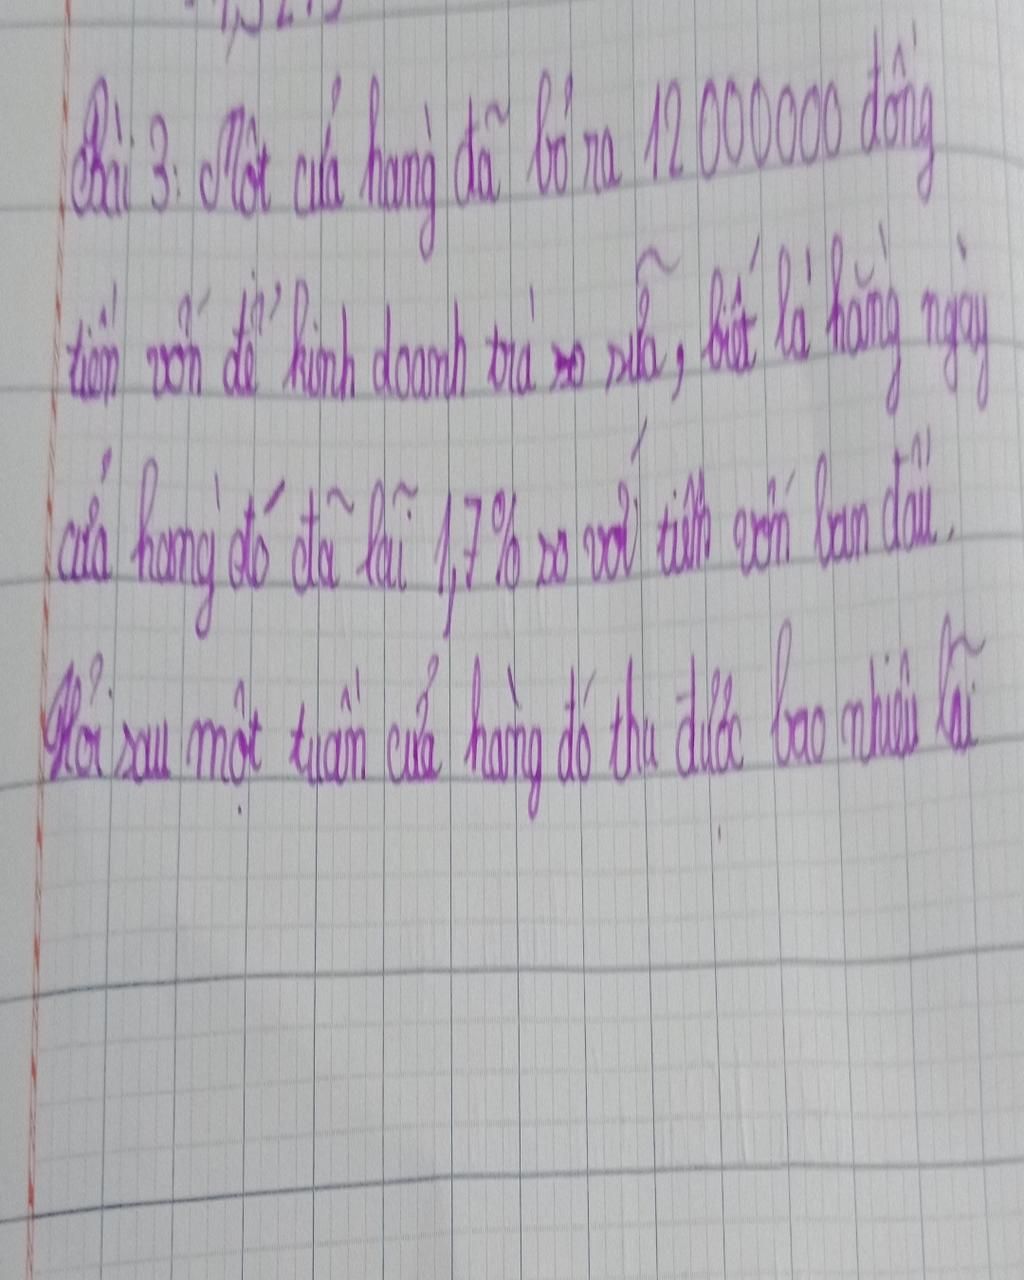 Bài 3: Một cửa hàng đã bỏ ra 12 000000 đồng
tiền vốn để kinh doanh trà sữa, biết là hằng ngày
cửa hàng đó đã lãi 1,7% so với tiền vốn ban đầu.
Hỏi sau một tuần cửa hàng đó thu được bao nhiêu lãi